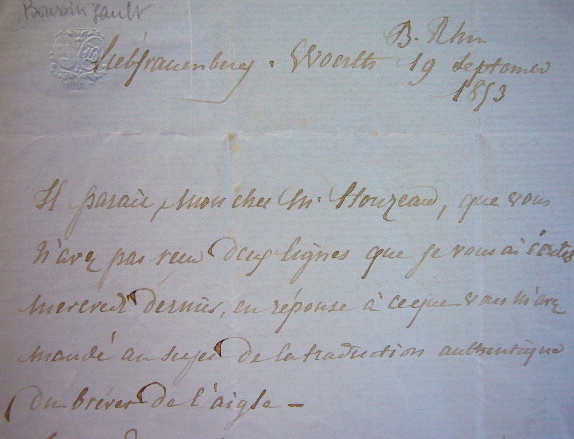 Boussingault
Liebfrauenberg. Woerth B. Rhin
19 septembre
1853
Il parait, mon cher M. Houzeau, que vous
n'avez pas reçu deux lignes que je vous ai écrites
mercredi dernier, en réponse à ce que vous m'avez
mandé au sujet de la traduction authentique
du brévet de l'aigle —